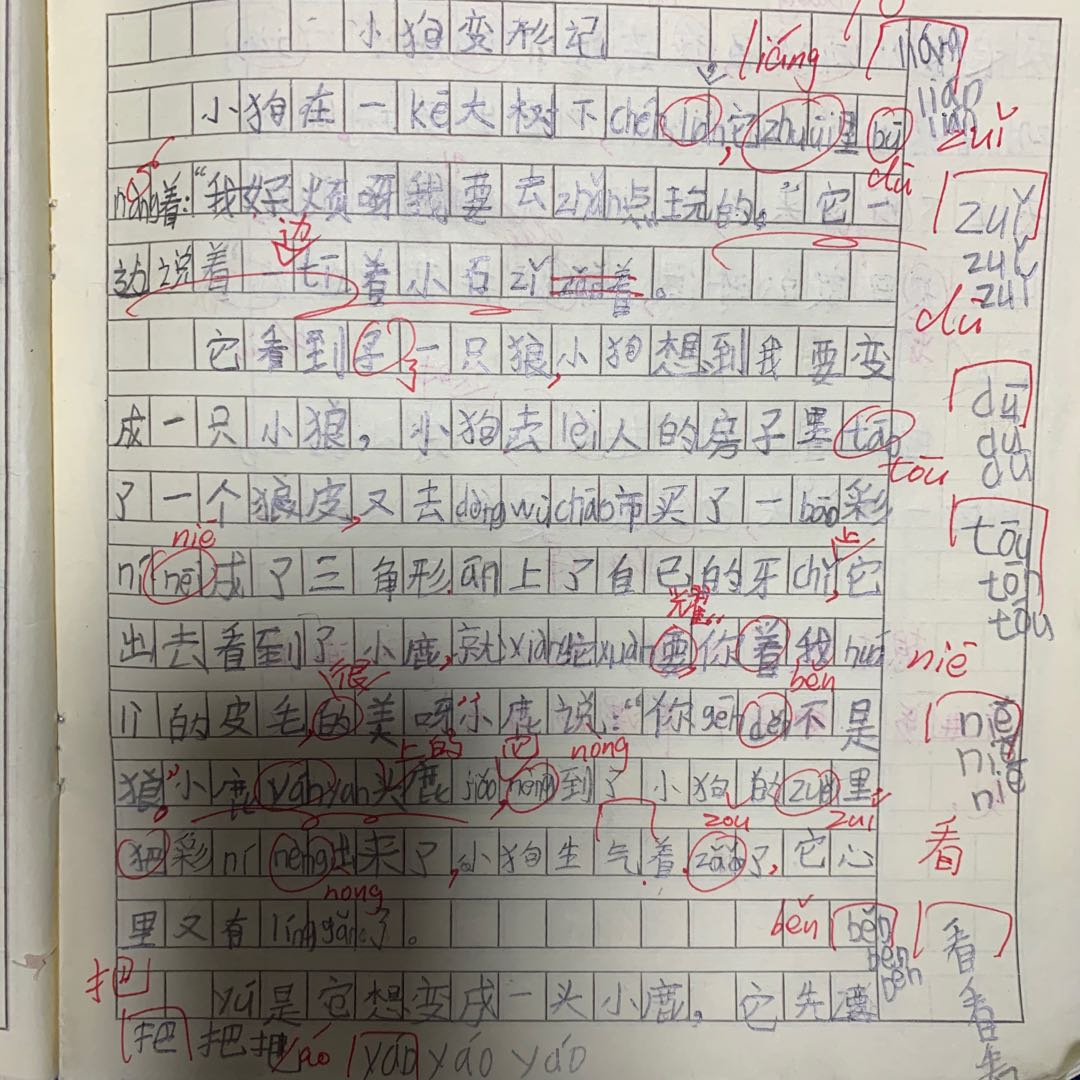 小狗变形记
小狗在一kē大树下chéng lián,它zhuǐ里bū
nang着:“我好烦呀我要去zhǎn点玩的。”它一
边说着一tī着小石zǐ。
它看到了一只狼,小狗想到我要变
成一只小狼,小狗去lèi人的房子里tāo
了一个狼皮,又去dòng wù chāo市买了一bāo彩
ní niē成了三角形,ān上了自己的牙chǐ,它
出去看到了小鹿,就xiàng它xuàn要你着我huó
的皮毛的美呀小鹿说:“你gēn děn不是
狼”小鹿yáo yao头鹿jiǎo neng到了小狗的zuǐ里
把彩ní neng出来了,小狗生气着zǎo了,它心
里又有líng gǎn了。
yú是它想变成一头小鹿,它先要
liáng
lián
lián
zuǐ
zuǐ
zuǐ
zuǐ
dū
dū
dū
dū
dū
边
了
tōu
tōu
tōu
tōu
niē
上
耀
很
běn
niē
niē
niē
niē
上的
nong
zǒu
zuǐ
nong
看
看
看
běn
běn
běn
běn
把
把 把 把
yáo yáo yáo